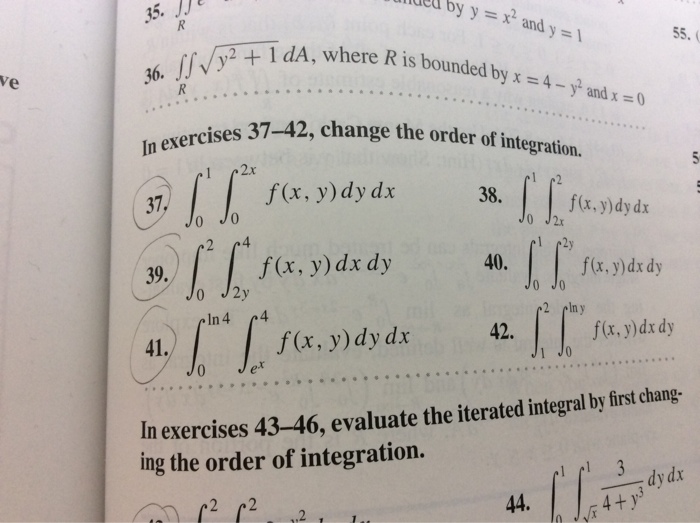 35. ∬
R
by y = x² and y = 1
55. (
36. ∬ √(y² + 1) dA, where R is bounded by x = 4 − y² and x = 0
R
ve
In exercises 37–42, change the order of integration.
5
37. ∫₀¹ ∫₀²ˣ f(x, y) dy dx
38. ∫₀¹ ∫₂ₓ² f(x, y) dy dx
39. ∫₀² ∫_{2y}^{4} f(x, y) dx dy
40. ∫₀¹ ∫_{0}^{2y} f(x, y) dx dy
41. ∫_{0}^{ln 4} ∫_{eˣ}^{4} f(x, y) dy dx
42. ∫₁² ∫_{0}^{ln y} f(x, y) dx dy
In exercises 43–46, evaluate the iterated integral by first chang-
ing the order of integration.
44. ∫₀¹ ∫_{√x}^{1} 3/(4 + y³) dy dx